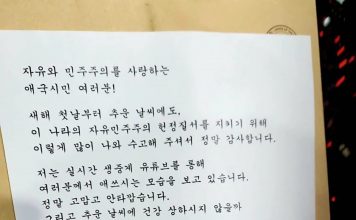 자유와 민주주의를 사랑하는
애국시민 여러분!
새해 첫날부터 추운 날씨에도,
이 나라의 자유민주주의 헌정질서를 지키기 위해
이렇게 많이 나와 수고해 주셔서 정말 감사합니다.
저는 실시간 생중계 유튜브를 통해
여러분께서 애쓰시는 모습을 보고 있습니다.
정말 고맙고 안타깝습니다.
그리고 추운 날씨에 건강 상하시지 않을까